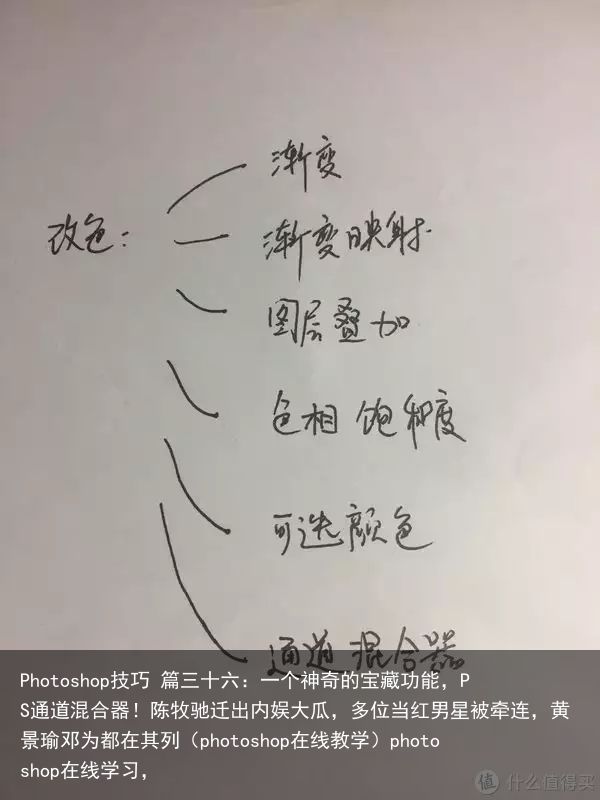 渐变
改色：
渐变映射
图层叠加
色相 饱和度
可选颜色
通道混合器
Photoshop技巧 篇三十六：一个神奇的宝藏功能，P
S通道混合器！陈牧驰迁出内娱大瓜，多位当红男星被牵连，黄
景瑜邓为都在其列（photoshop在线教学）photo
shop在线学习，
值 什么值得买